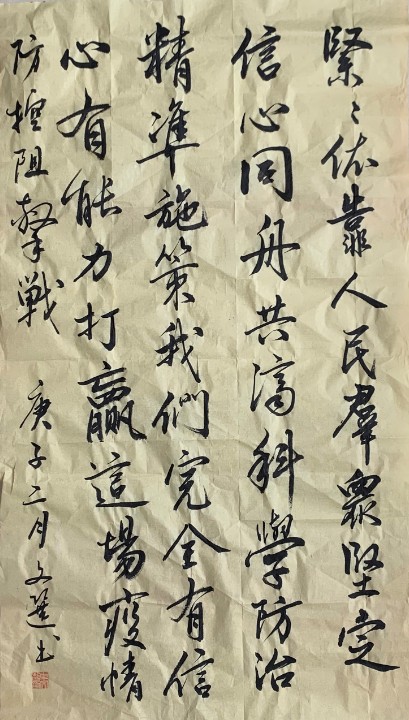 緊〻依靠人民羣衆堅定
信心同舟共濟科學防治
精準施策我們完全有信
心有能力打贏這場疫情
防控阻擊戰
庚子二月文選书